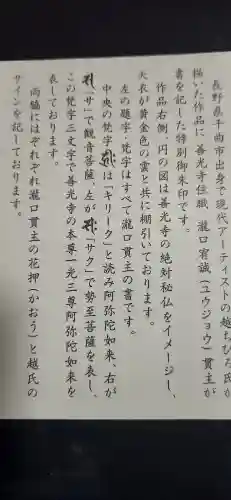 長野県千曲市出身で現代アーティストの越ちひろ氏が
描いた作品に 善光寺住職 瀧口宥誠(ユウジョウ)貫主が
書を記した特別御朱印です。
作品右側、円の図は善光寺の絶対秘仏をイメージし、
天衣が黄金色の雲と共に棚引いております。
左の題字・梵字はすべて瀧口貫主の書です。
中央の梵字は「キリーク」と読み阿弥陀如来、右が
「サ」で観音菩薩、左が「サク」で勢至菩薩を表し、
この梵字三文字で善光寺の本尊一光三尊阿弥陀如来を
表しております。
両脇にはそれぞれ瀧口貫主の花押(かおう)と越氏の
サインを記しております。